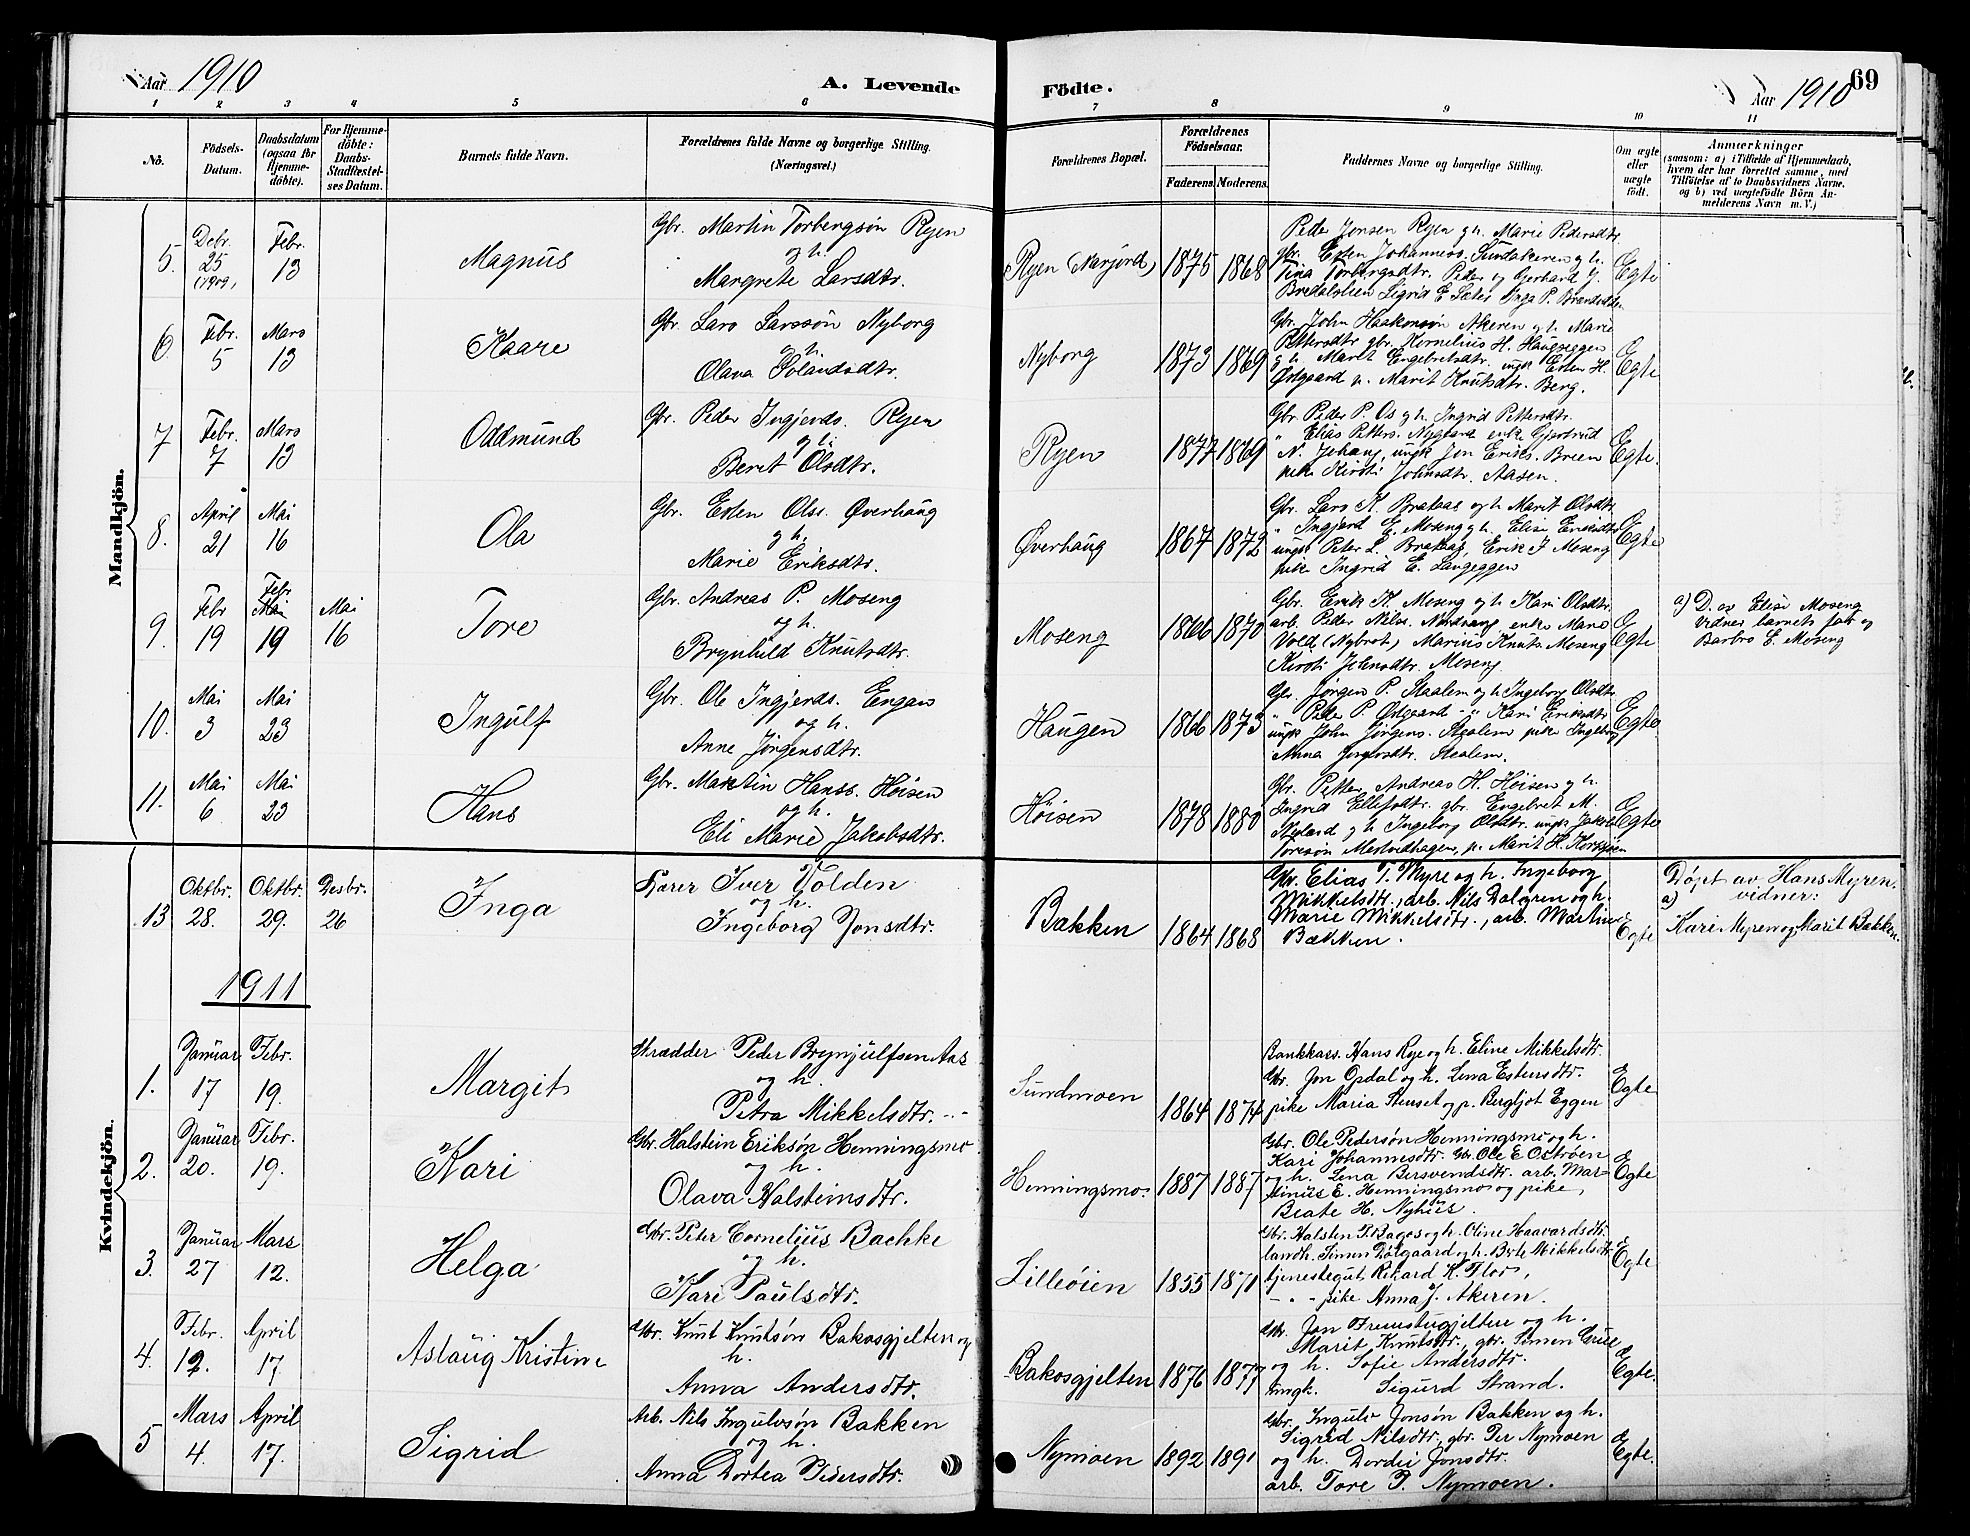 Aar 1910
A. Levende
Födte.
Aar 1910
69
1 2 3 4 5 6 7 8 9 10 11
No.
Födsels-
Datum.
Daabsdatum
(ogsaa for
Hjemme-
döbte).
For Hjemme-
döbte:
Daabs-
Stadfæstel-
ses Datum.
Barnets fulde Navn.
Forældrenes fulde Navne og borgerlige Stilling.
(Næringsvei.)
Forældrenes Bopæl.
Forældrenes
Födselsaar.
Faderens.
Moderens.
Faddernes Navne og borgerlige Stilling.
Om ægte
eller
uægte
födt.
Anmærkninger
(saasom: a) i Tilfælde af Hjemmedaab,
hvem der har forrettet samme, med
Tilföielse af to Daabsvidners Navne,
og b) ved uægtefödte Börn An-
melderens Navn m. V.)
Mandkjön.
5. Debr. 25 (1909) Febr. 13
Magnus
Gbr. Martin Torbergsøn Ryen
og h.
Margrete Larsdtr.
Ryen (Narjord) 1875 1868
Peder Jonsen Ryen og h. Marie Pedersdtr.
gbr. Esten Johanness. Sundakeren og h.
Tina Torbergsdtr. Peder og Gerhard J.
Bredalslien Sigrid E. Sæter Inga P.
Egte
6. Febr. 5 Mars 13
Kaare
Gbr. Lars Larssøn Nyborg
og h.
Olava Tolandsdtr.
Nyborg 1873 1869
Gbr. John Haakonsøn Akeren og h. Marie
Pettersdtr gbr. Kornelius H. Haugseggen
og h. Marit Engebretsdtr. ungk Esten H.
Østgaard p. Marit Knutsdtr. Berg.
Egte
7 Febr. 7 Mars 13
Oddmund
Gbr. Peder Ingjerds. Ryen
og h.
Beret Olsdtr.
Ryen 1877 1869
Gbr. Peder P. Os og h. Ingrid Pettersdtr.
" Elias Petters. Nygaard enke Gjertrud
N. Jehang, ungk Jon Eriks. Breen
pike Kirsti Johnsdtr. Aasen.
Egte.
8. April 21 Mai 16
Ola
Gbr. Esten Olss. Øverhaug
og h.
Marie Eriksdtr.
Øverhaug 1867 1872
Gbr. Lars K. Brataas og h. Marit Olsdtr.
" Ingjerd E. Moseng og h. Elise Eriksdtr
ungk Peter L. Brataas, Erik J Moseng
pike Ingrid E. Langeggen
Egte
9. Febr 19 Febr. Mai 19 Mai 16
Tore
Gbr. Andreas P. Moseng
og h.
Brynhild Knutsdtr.
Moseng 1866 1870
Gbr. Erik K. Moseng og h Kari Olsdtr.
arb. Peder Nils. Nordvang enke Marie
Vold (Nybrot) Marius Knuts. Moseng
Kirsti Johnsdtr. Moseng
Egte
a) D. av Elise Moseng
vidner barnets far og
Barbro E. Moseng
10. Mai 3 Mai 23
Ingulf
Gbr. Ole Ingjerds. Engan
og h.
Anne Jörgensdtr.
Haugen 1866 1873
Gbr. Jörgen P. Staalem og h Ingeborg Olsdtr
" Peder P. Østgaard -"- Kari Eriksdtr
ungk John Jörgens. Staalem pike Ingeborg
Anna Jörgensdtr. Staalem.
Egte
11. Mai 6 Mai 23
Hans
Gbr. Martin Hanss. Höisen
og h.
Eli Marie Jakobsdtr.
Höisen 1878 1880
Gbr. Petter Andreas H. Höisen og h.
Ingrid Ellefsdtr. gbr. Engebret M.
Nyland og h Ingeborg Olsdtr. ungk Jakob
Toresøn Mastvidhagen, p. Marit H.
Egte
Kvindekjön.
13 Oktbr. 28. Oktbr. 29. Desbr. 26
Inga
Iver Volden
og h.
Ingeborg Jonsdtr.
Bakken 1864 1868
Gbr. Elias T. Myre og h. Ingeborg
Mikkelsdtr., arb. Nils Dalgren og h.
Marie Mikkelsdtr., arb. Martin
Bækken.
Egte
Döpt av Hans Myren.
a) vidner:
Kari Myren og Marit Bakken.
1911
1. Januar 17 Febr. 19.
Margit
Skrædder Peder Brynjulfsen Aas
og h.
Petra Mikkelsdtr.
Sundmoen 1864 1874
Bankkass. Hans Rye og h. Eline Mikkelsdtr.
Gbr. Jon Opdal og h. Lena Estensdtr.
pike Maria Stenset og p. Bergljot Eggen
Egte
2. Januar 20. Febr. 19.
Kari
Gbr. Halstein Eriksøn Henningsmo
og h.
Olava Halsteinsdtr.
Henningsmo. 1887 1887
Gbr. Ole Pedersøn Henningsmo og h.
Kari Johannesdtr. Gbr. Ole E Ostrøen
og h. Lena Bersvendsdtr. arb. Mar-
tinus E. Henningsmo og pike
Beate H. Nyhus.
Egte
3. Januar 27 Mars 12.
Helga
Gbr. Peter Cornelius Bachke
og h.
Kari Paulsdtr.
Lilleöien 1855 1871
Gbr. Halsten P. Bagøs og h. Oline Haavardsdtr.
landh. Simen Dølgaard og h. Berte Mikkelsdtr
tjenestegut Rikard K. Flor,
- " - pike Anna J. Akeren.
Egte
4. Febr. 12. April 17.
Aslaug Kristine
Gbr. Knut Knutsøn Bakosgjelten og
h.
Anna Andersdtr.
Bakosgjelten 1876 1877
Gbr. Jon Fremstugjelten og h.
Marit Knutsdtr., gbr. Simen Grue
og h. Sofie Andersdtr.
ungk. Sigurd Strand.
Egte.
5 Mars 4. April 17.
Sigrid
Arb. Nils Ingulvsøn Bakken
og h.
Anna Dortea Pedersdtr.
Nymoen 1892 1891
Gbr. Ingulv Jonsøn Bakken og h.
Sigrid Nilsdtr., gbr. Per Nymoen
og h. Dordei Jonsdtr.
arb. Tore P. Nymoen.
Egte.